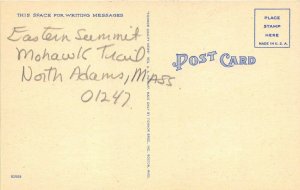 THIS SPACE FOR WRITING MESSAGES
Eastern Summit
Mohawk Trail
North Adams, MASS
01247
POST CARD
PLACE
STAMP
HERE
MADE IN U.S.A.